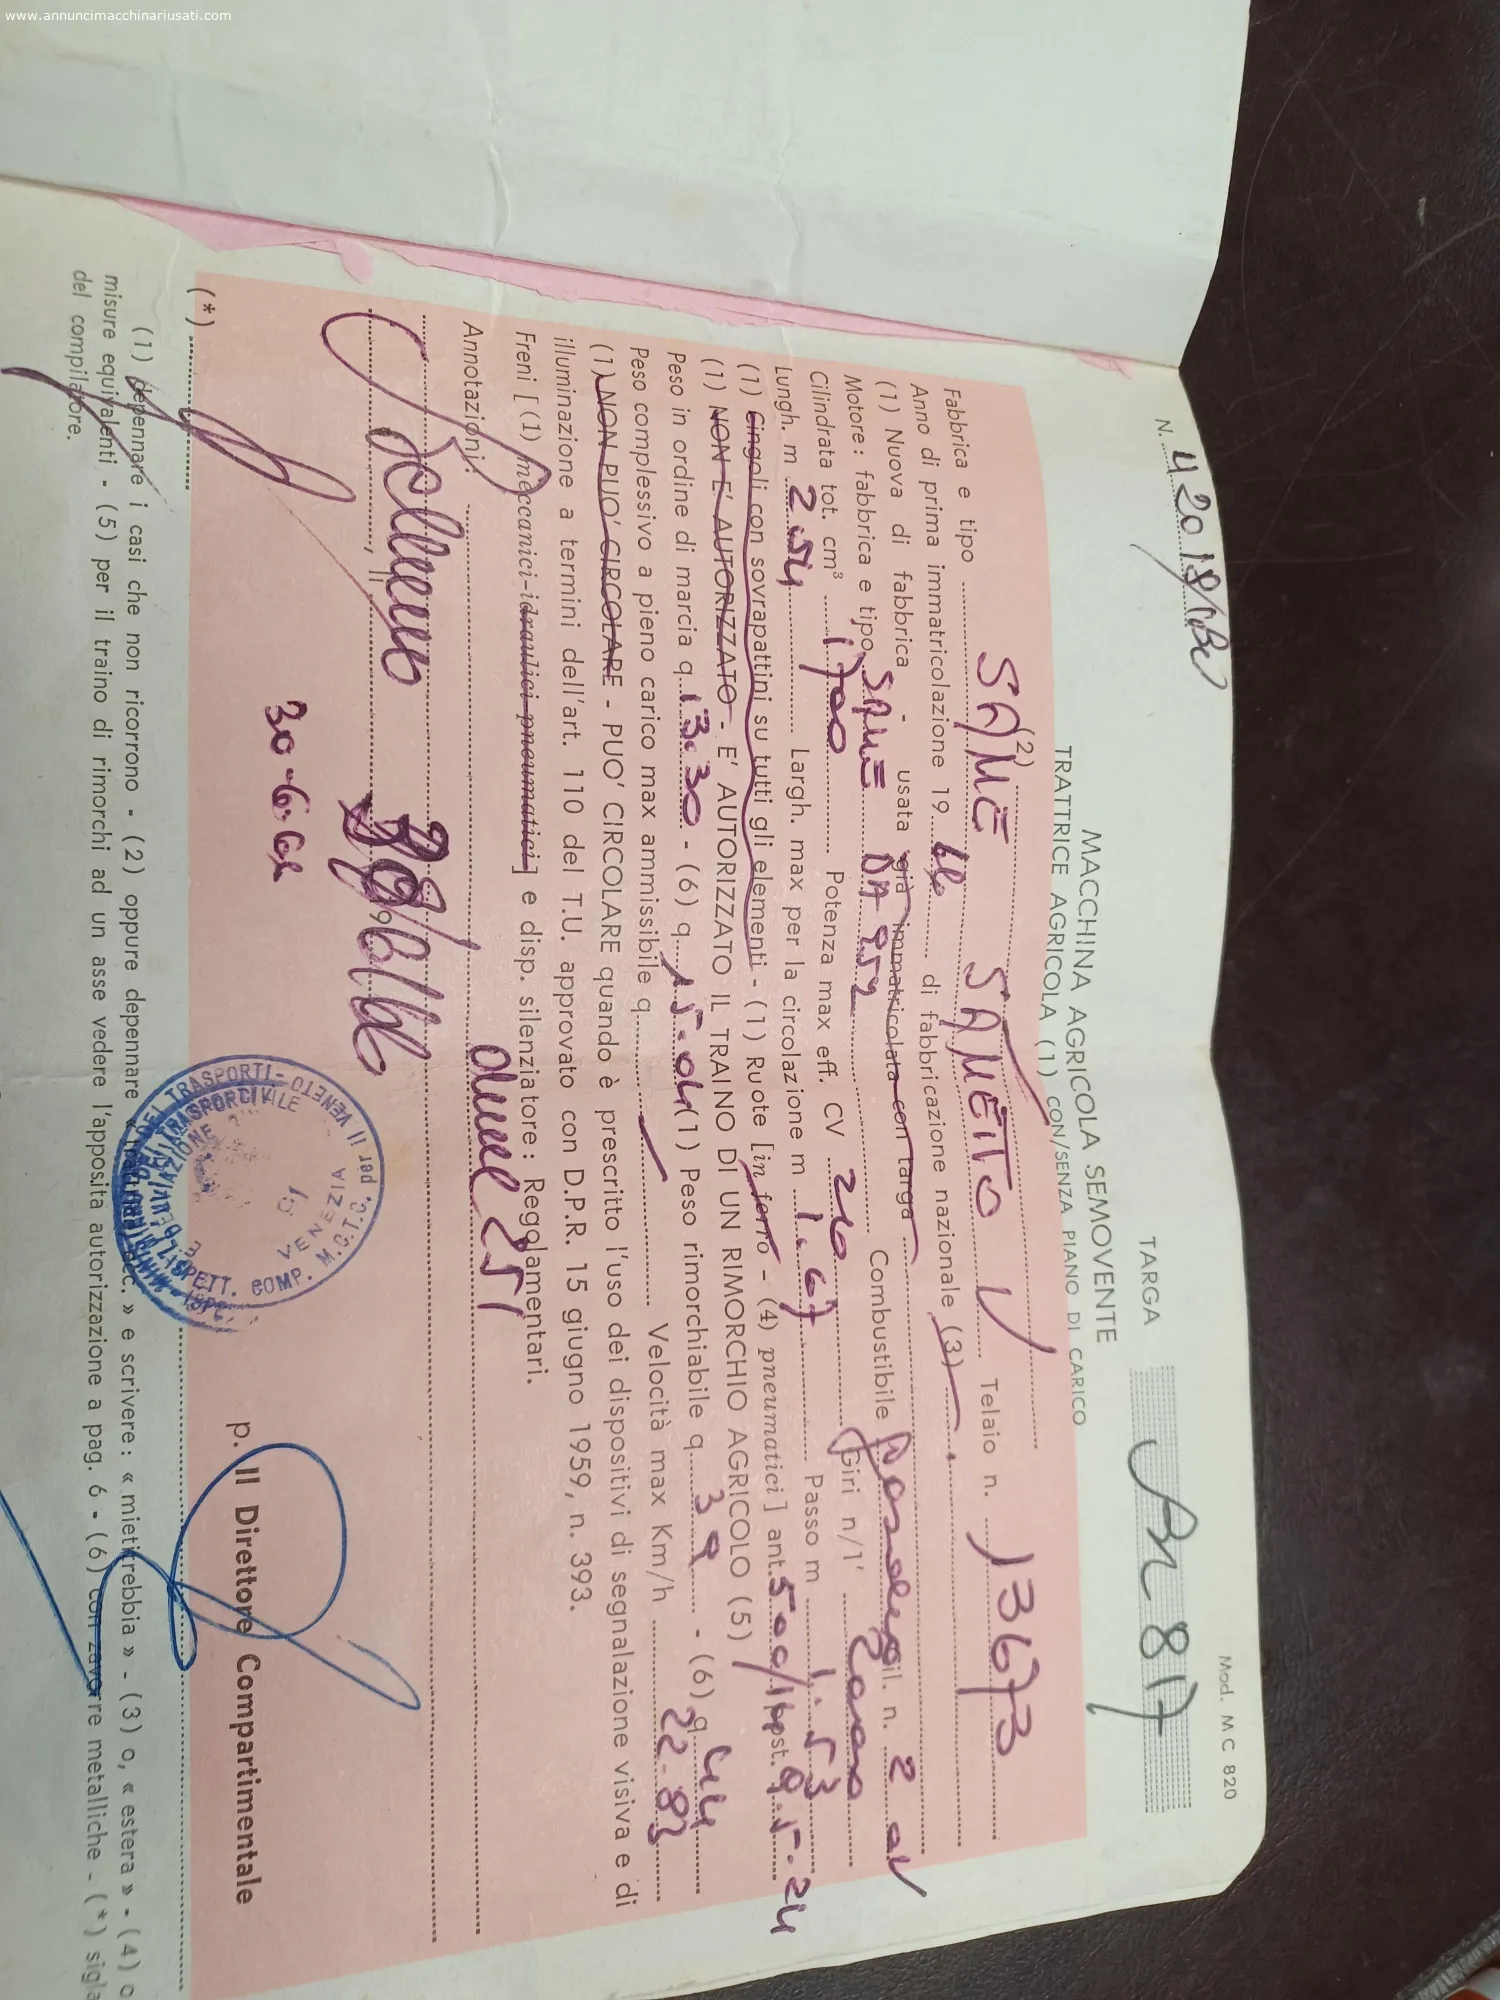 www.annuncimacchinariusati.com
Mod. M C 820
N. 42018/
TARGA BL 817
MACCHINA AGRICOLA SEMOVENTE
TRATTRICE AGRICOLA (1) CON/SENZA PIANO DI CARICO
(2)
Fabbrica e tipo SAME SAMETTO V Telaio n. 13673
Anno di prima immatricolazione 19 di fabbricazione nazionale (3)
(1) Nuova di fabbrica - usata già immatricolata con targa
Motore: fabbrica e tipo SAME DA 252 Combustibile gasolio cil. n. 2 a V
Cilindrata tot. cm³ 1700 Potenza max eff. CV 26 Giri n/1' 2000
Lungh. m 2.54 Largh. max per la circolazione m 1.67 Passo m 1.53
(1) Cingoli con sovrapattini su tutti gli elementi - (1) Ruote [in ferro - (4) pneumatici] ant. 500/ pst. 9.5-24
(1) NON E' AUTORIZZATO - E' AUTORIZZATO IL TRAINO DI UN RIMORCHIO AGRICOLO (5)
Peso in ordine di marcia q. 13.30 - (6) q. 15.04 (1) Peso rimorchiabile q. 39 - (6) q 44
Peso complessivo a pieno carico max ammissibile q. Velocità max Km/h 22.83
(1) NON PUO' CIRCOLARE - PUO' CIRCOLARE quando è prescritto l'uso dei dispositivi di segnalazione visiva e di
illuminazione a termini dell'art. 110 del T.U. approvato con D.P.R. 15 giugno 1959, n. 393.
Freni [(1) meccanici-idraulici-pneumatici] e disp. silenziatore: Regolamentari.
Annotazioni:
, li 19
30-6-64
p. Il Direttore Compartimentale
VENEZIA
(*)
(1) depennare i casi che non ricorrono - (2) oppure depennare « trattrice ecc. » e scrivere: « mietitrebbia » - (3) o, « estera » - (4) o
misure equivalenti - (5) per il traino di rimorchi ad un asse vedere l'apposita autorizzazione a pag. 6 - (6) con zavorre metalliche - (*) sigla
del compilatore.